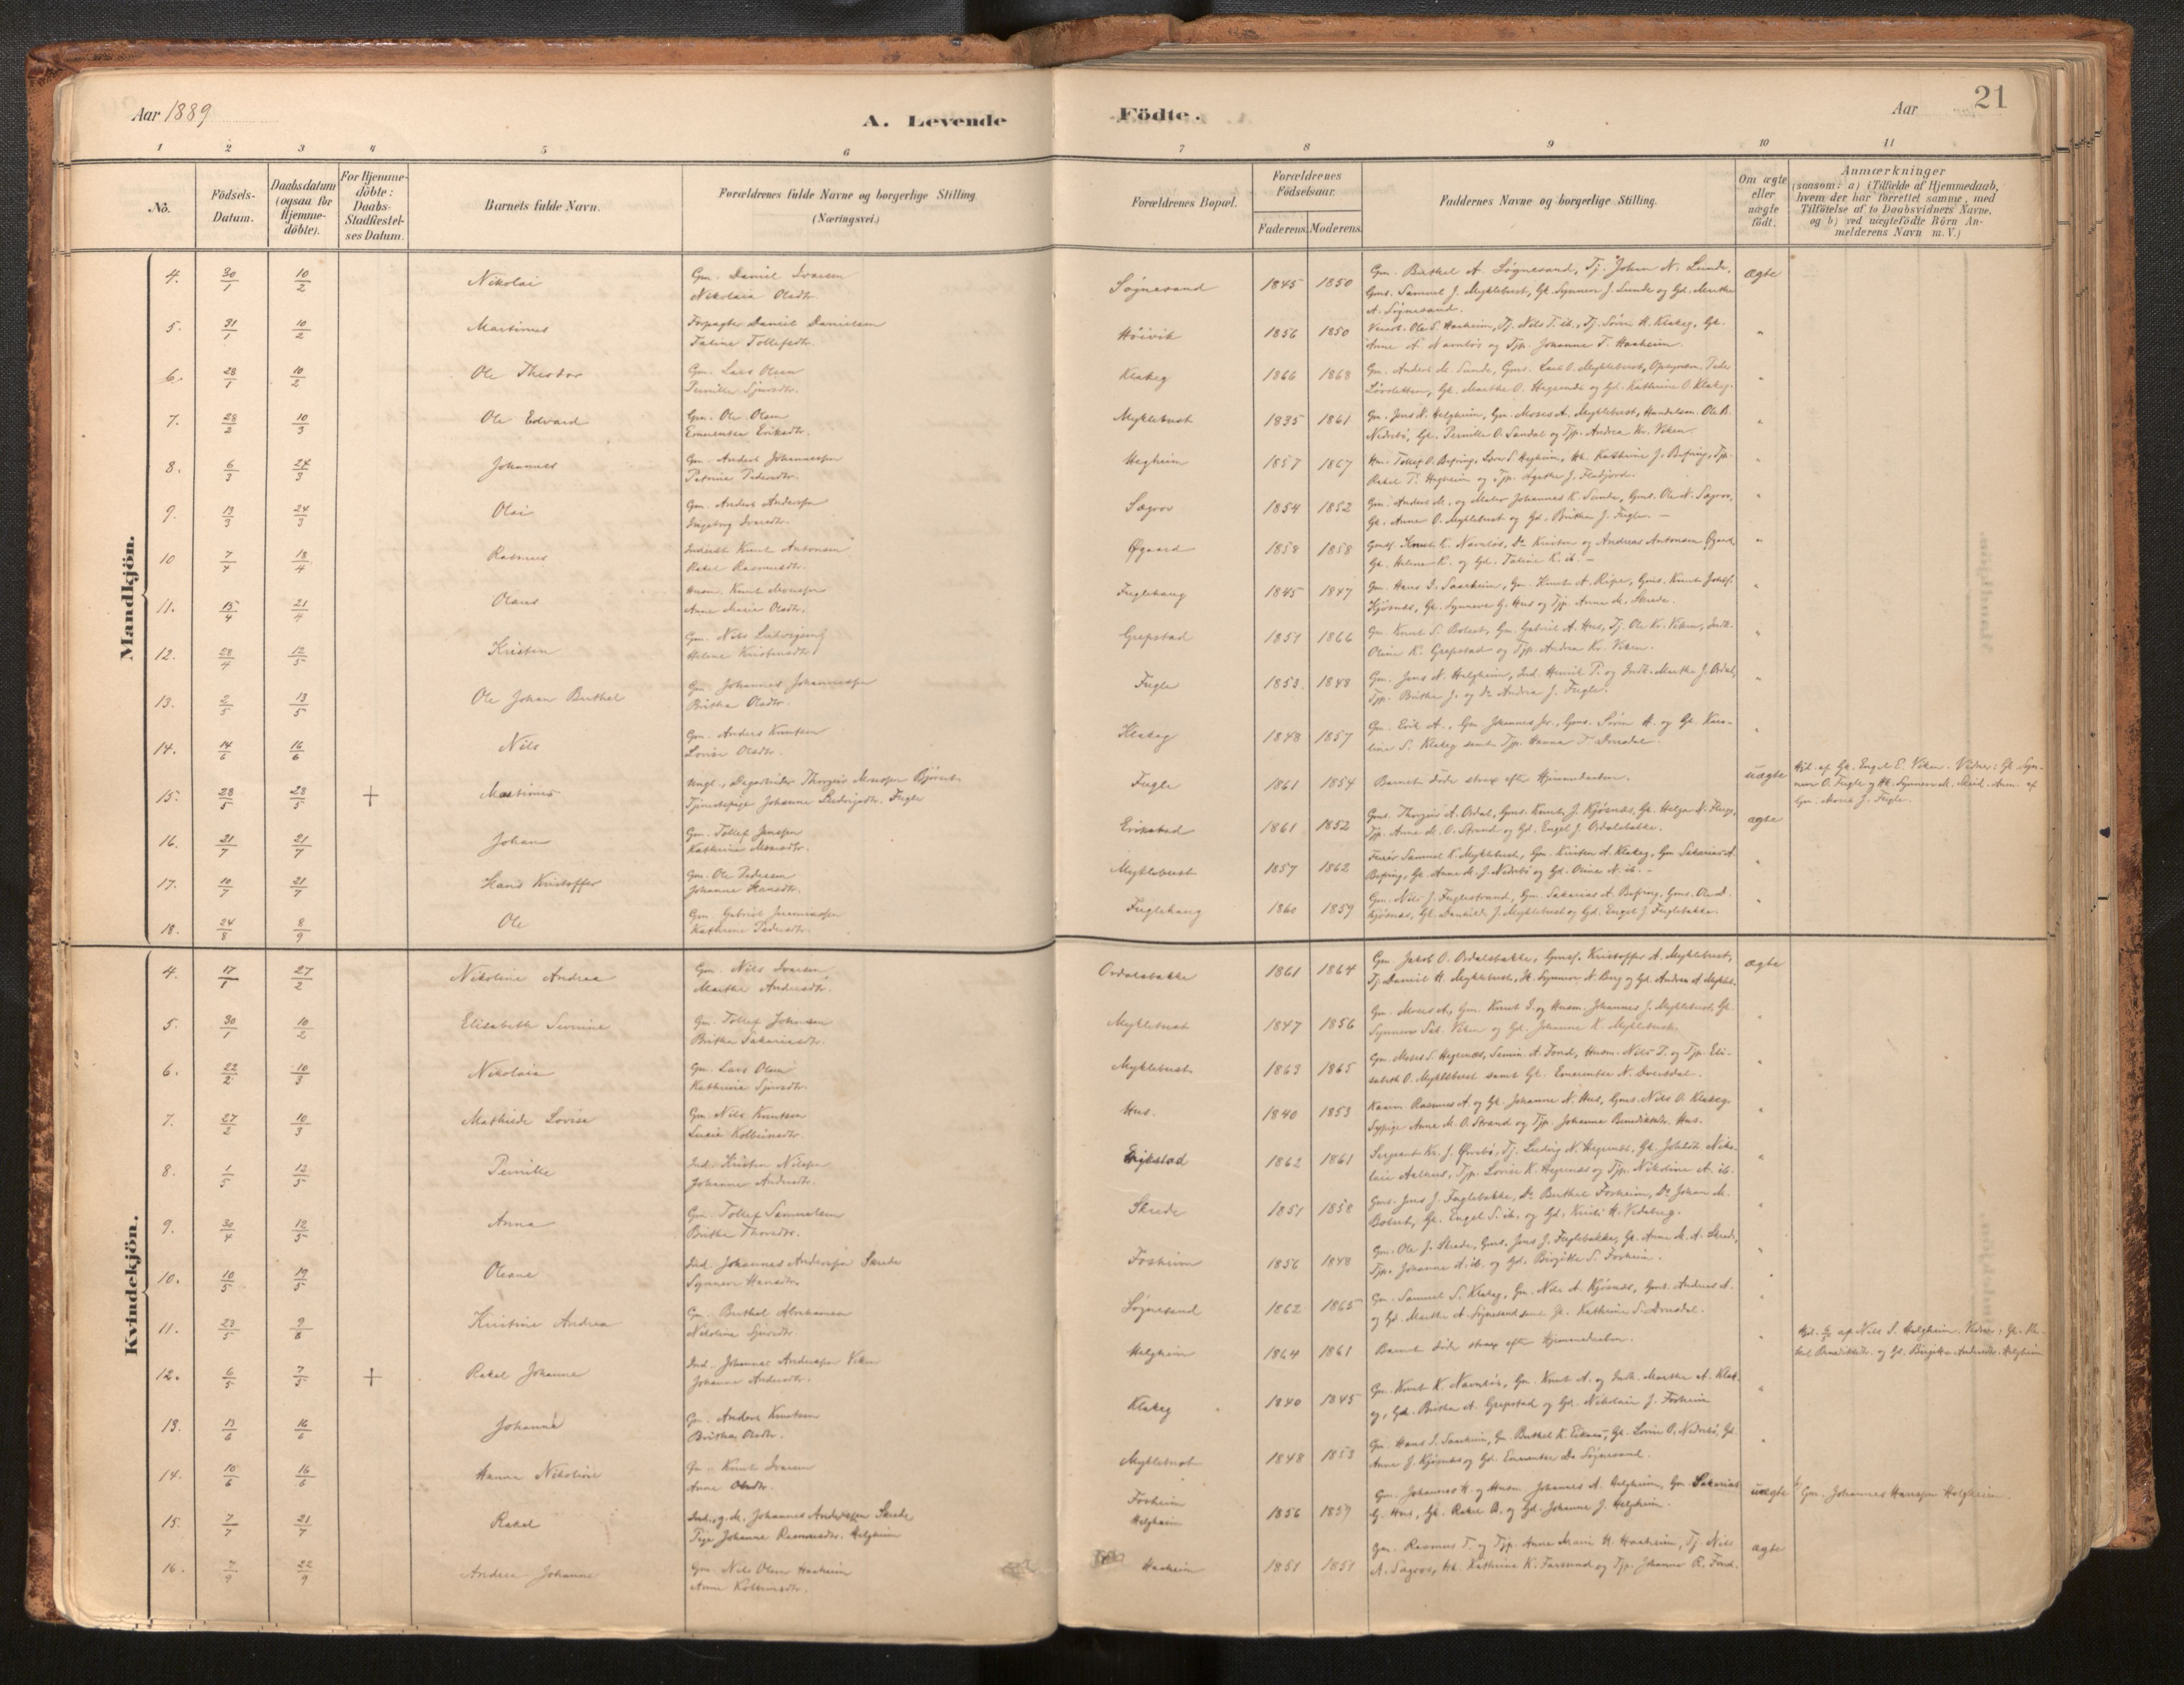 Aar 1889
A. Levende
Födte.
Aar
21
1 2 3 4 5 6 7 8 9 10 11
No.
Födsels-Datum.
Daabsdatum (ogsaa for Hjemme-döbte).
For Hjemme-döbte: Daabs-Stadfæstel-ses Datum.
Barnets fulde Navn.
Forældrenes fulde Navne og borgerlige Stilling
(Næringsvei.)
Forældrenes Bopæl.
Forældrenes Födselsaar.
Faderens. Moderens.
Faddernes Navne og borgerlige Stilling.
Om ægte eller uægte födt.
Anmærkninger
(saasom: a) i Tilfælde af Hjemmedaab,
hvem der har forrettet samme, med
Tilföielse af to Daabsvidners Navne,
og b) ved uægtefödte Börn An-
melderens Navn m. V.)
Mandkjön.
4. 30/1 10/2 Nikolai
Gm. Daniel Ivarsen
Nikolaia Olsdtr.
Søgnesand 1845 1850
Gm. Berthel A. Søgnesand, Tj. Johan N. Lunde,
Gms. Samuel J. Myklebust, Gk. Synneve J. Lunde og Gd. Marthe
A. Søgnesand.
ægte
5. 31/1 10/2 Martinus
Forpagter Daniel Danielsen
Taline Tollefsdtr.
Höivik 1856 1850
Anne A. Navnløs og Tjp. Johanne T. Haaheim.
"
6. 28/1 10/2 Ole Theodor
Gm. Lars Olsen
Pernille Sjursdtr.
Klakeg 1866 1868
Gm. Anders M. Sunde, Gms. Lars O. Myklebust, Opsynsm. Peder
Gk. Marthe O. Hegrenes og Gd. Kathrine O. Klakeg.
"
7. 28/2 10/3 Ole Edvard
Gm. Ole Olsen
Emerentse Eriksdtr.
Myklebust 1835 1861
Gm. Jens N. Helgheim, Gm. Moses A. Myklebust, Handelsm. Ole B.
Nedrebö, Gk. Pernille O. Sandal og Tjp. Andrea Kr. Viken.
"
8. 6/3 24/3 Johannes
Gm. Anders Johannessen
Petrine Pedersdtr.
Hegheim 1857 1867
Rakel T. Hegheim og Tjp. Agathe J. Fladjord.
"
9. 13/3 24/3 Olai
Gm. Anders Anderssen
Ingeborg Ivarsdtr.
Sægrov 1854 1852
Gm. Anders M. og Maler Johannes K. Sunde, Gms. Ole N. Sægrov,
Gk. Anne O. Myklebust og Gd. Brithe J. Fugle.
"
10 7/4 18/4 Rasmus
Inderst Knut Antonsen
Rakel Rasmusdtr.
Øgaard 1858 1858
Gmsf. Knut K. Navnløs, Do Kristen og Andreas Antonsen Øgaard,
Gk. Helene K. og Gd. Taline K. ib.
"
11. 15/4 21/4 Olaus
Husm. Knut Monssen
Anne Marie Olsdtr.
Fuglehaug 1845 1847
Gm. Hans I. Saarheim, Gm. Knut A. Ripe, Gms. Knut Johs.
Kjøsnes, Gk. Synneve G. Hus og Tjp. Anne M. Skrede.
"
12. 28/4 12/5 Kristen
Gm. Nils Ludvigsen
Helene Kristensdtr.
Grepstad 1851 1866
Gm. Knut S. Bolset, Gm. Gabriel A. Hus, Tj. Ole Kr. Viken, Indk.
Oline K. Grepstad og Tjp. Andrea Kr. Viken.
"
13. 2/5 13/5 Ole Johan Berthel
Gm. Johannes Johannessen
Brithe Olsdtr.
Fugle 1853 1848
Gm. Jens N. Helgheim, Ind. Henrik T. og Indk. Marthe J. Ordal,
Tjp. Brithe J. og Do Andrea J. Fugle.
"
14. 14/6 16/6 Nils
Gm. Anders Knutsen
Lovise Olsdtr.
Klakeg 1848 1857
Gm. Erik A., Gm Johannes Jr., Gms. Sørin A. og Gk. Karo-
line S. Klakeg samt Tjp. Hanna T. Årsdal.
"
15. 28/5 28/5 + Martinus
Ungk., Dagarbeider Thorgeir Monssen Bjørset
Tjenestepige Johanne Ludvigsdtr. Fugle
Fugle 1861 1854
Barnet døde strax efter Hjemmedaaben.
uægte
Hjd. af Gk. Engel E. Viken. Vidner: Gk. Syn-
neve O. Fugle og Hk. Synneve M. Skeid. Anm. af
Gm. Mons J. Fugle.
16. 21/7 21/7 Johan
Gm. Tollef Jenssen
Kathrine Monsdtr.
Erikstad 1861 1852
Gms. Thorgeir A. Ordal, Gms. Knut J. Kjøsnes, Gk. Helga A. Fluge,
Tjp. Anne M. O. Strand og Gd. Engel J. Ordalsbakke.
ægte
17. 10/7 21/7 Hans Kristoffer
Gm. Ole Pedersen
Johanne Hansdtr.
Myklebust 1857 1862
Furér Samuel K. Myklebust, Gm. Kristen A. Klakeg, Gm Sakarias A.
Befring, Gk. Anne M. J. Nedrebö og Gd. Oline N. ib.
"
18. 24/8 8/9 Ole
Gm. Gabriel Jeremiassen
Kathrine Pedersdtr.
Fuglehaug 1860 1859
Gm. Nils J. Fuglestrand, Gm. Sakarias A. Befring, Gms. Ole A.
Kjøsnes, Gk. Danhilde J. Myklebust og Gd. Engel J. Fuglebakke.
"
Kvindekjön.
4. 17/1 27/2 Nikoline Andrea
Gm. Nils Ivarsen
Marthe Andersdtr.
Ordalsbakke 1861 1864
Gm Jakob O. Ordalsbakke, Gmsf. Kristoffer A. Myklebust,
Tj. Daniel H. Myklebust, H. Synneve N. Berg og Gd. Andrea A. Mykleb.
ægte
5. 30/1 10/2 Elisabeth Severine
Gm. Tollef Johnsen
Brithe Sakariasdtr.
Myklebust 1847 1856
Gm. Moses A., Gm. Knut I. og Husm. Johannes J. Myklebust, Gk.
Synneve Sak. Viken og Gd. Johanne K. Myklebust.
"
6. 22/2 10/3 Nikolaia
Gm. Lars Olsen
Kathrine Sjursdtr.
Myklebust 1863 1865
Gm. Moses S. Hegrenes, Semin. A. Fond, Husm. Nils T. og Tjp. Eli-
sabeth O. Myklebust samt Gk. Emerentse N. Årsdal.
"
7. 27/2 10/3 Mathilde Lovise
Gm. Nils Knutsen
Lucie Kolbeinsdtr.
Hus. 1840 1853
Kaarm. Rasmus A. og Gk. Johanne N. Hus, Gms. Nils O. Klakeg,
Sypige Anne M. O. Strand og Tjp. Johanne Benediktsdtr. Hus.
"
8. 1/5 12/5 Pernille
Ind. Kristen Nilssen
Johanne Andersdtr.
Erikstad 1862 1861
Sergeant Kr. J. Øvrebö, Tj. Ludvig N. Hegrenes, Gk. Johilde Niko-
laie Aalhus, Tjp. Lovise K. Hegrenes og Tjp. Nikoline A. ib.
"
9. 30/4 12/5 Anna
Gm. Tollef Samuelsen
Brithe Thorsdtr.
Skrede 1851 1858
Gms. Jens J. Fuglebakke, Do Berthel Forheim, Do Johan M.
Bolset, Gk. Engel S. ib. og Gd. Kristi H. Vedalsrg.
"
10. 10/5 19/5 Oleane
Ind. Johannes Anderssen Skrede
Synneve Hansdtr.
Fosheim 1856 1848
Gm. Ole J. Skrede, Gms. Jens J. Fuglebakke, Gk. Anne M. A. Skrede,
Tjp. Johanne A. ib. og Gd. Birgitte S. Fosheim.
"
11. 23/5 9/6 Kristine Andrea
Gm. Berthel Abrahamsen
Nikoline Sjursdtr.
Søgnesand 1862 1865
Gm. Samuel S. Klakeg, Gm. Nils A. Kjøsnes, Gms. Andreas A.
og Gd. Marthe A. Søgnesand samt Gk. Kathrine S. Årsdal.
"
12. 6/5 7/5 + Rakel Johanne
Ind. Johannes Anderssen Viken
Johanne Andersdtr.
Helgheim 1864 1861
Barnet døde strax efter Hjemmedaaben.
"
Hjd. 6/5 af Nils S. Helgheim. Vidner: Gk. Ra-
kel Benediktsdtr. og Gd. Birgitte Andersdtr. Helgheim
13. 13/6 16/6 Johanne
Gm. Anders Knutsen
Brithe Olsdtr.
Klakeg 1840 1845
Gm. Knut K. Navnløs, Gm. Knut A. og Indk. Marthe A. Klak-
eg, Gd. Brithe A. Grepstad og Gd. Nikolaia J. Forheim
"
14. 10/6 16/6 Hanna Nikoline
Gm. Knut Ivarsen
Anne Olsdtr.
Myklebust 1848 1853
Gm. Hans I. Saarheim, Gm. Berthel K. Eikaas, Gk. Lovise O. Nedrebö, Gd.
Anne J. Kjøsnes og Gd. Emerentse Da. Søgnesand.
"
15. 7/7 21/7 Rakel
Ind., g. m. Johannes Anderssen Skrede
Pige Johanne Rasmusdtr. Helgheim
Fosheim
Helgheim 1856 1859
Gm. Johannes H. og Husm. Johannes A. Helgheim, Gm. Sakarias
G. Hus, Gk. Rakel B. og Gd. Johanne J. Helgheim.
uægte
Gm. Johannes Hanssen Helgheim.
16. 7/9 22/9 Andrea Johanne
Gm. Nils Olsen Haaheim
Anne Kolbeinsdtr.
Haaheim 1851 1851
Gm. Rasmus T. og Tjp. Anne Marie H. Haaheim, Tj. Nils
A. Sægrov, Hk. Kathrine K. Farsund og Tjp. Johanne R. Fond.
ægte